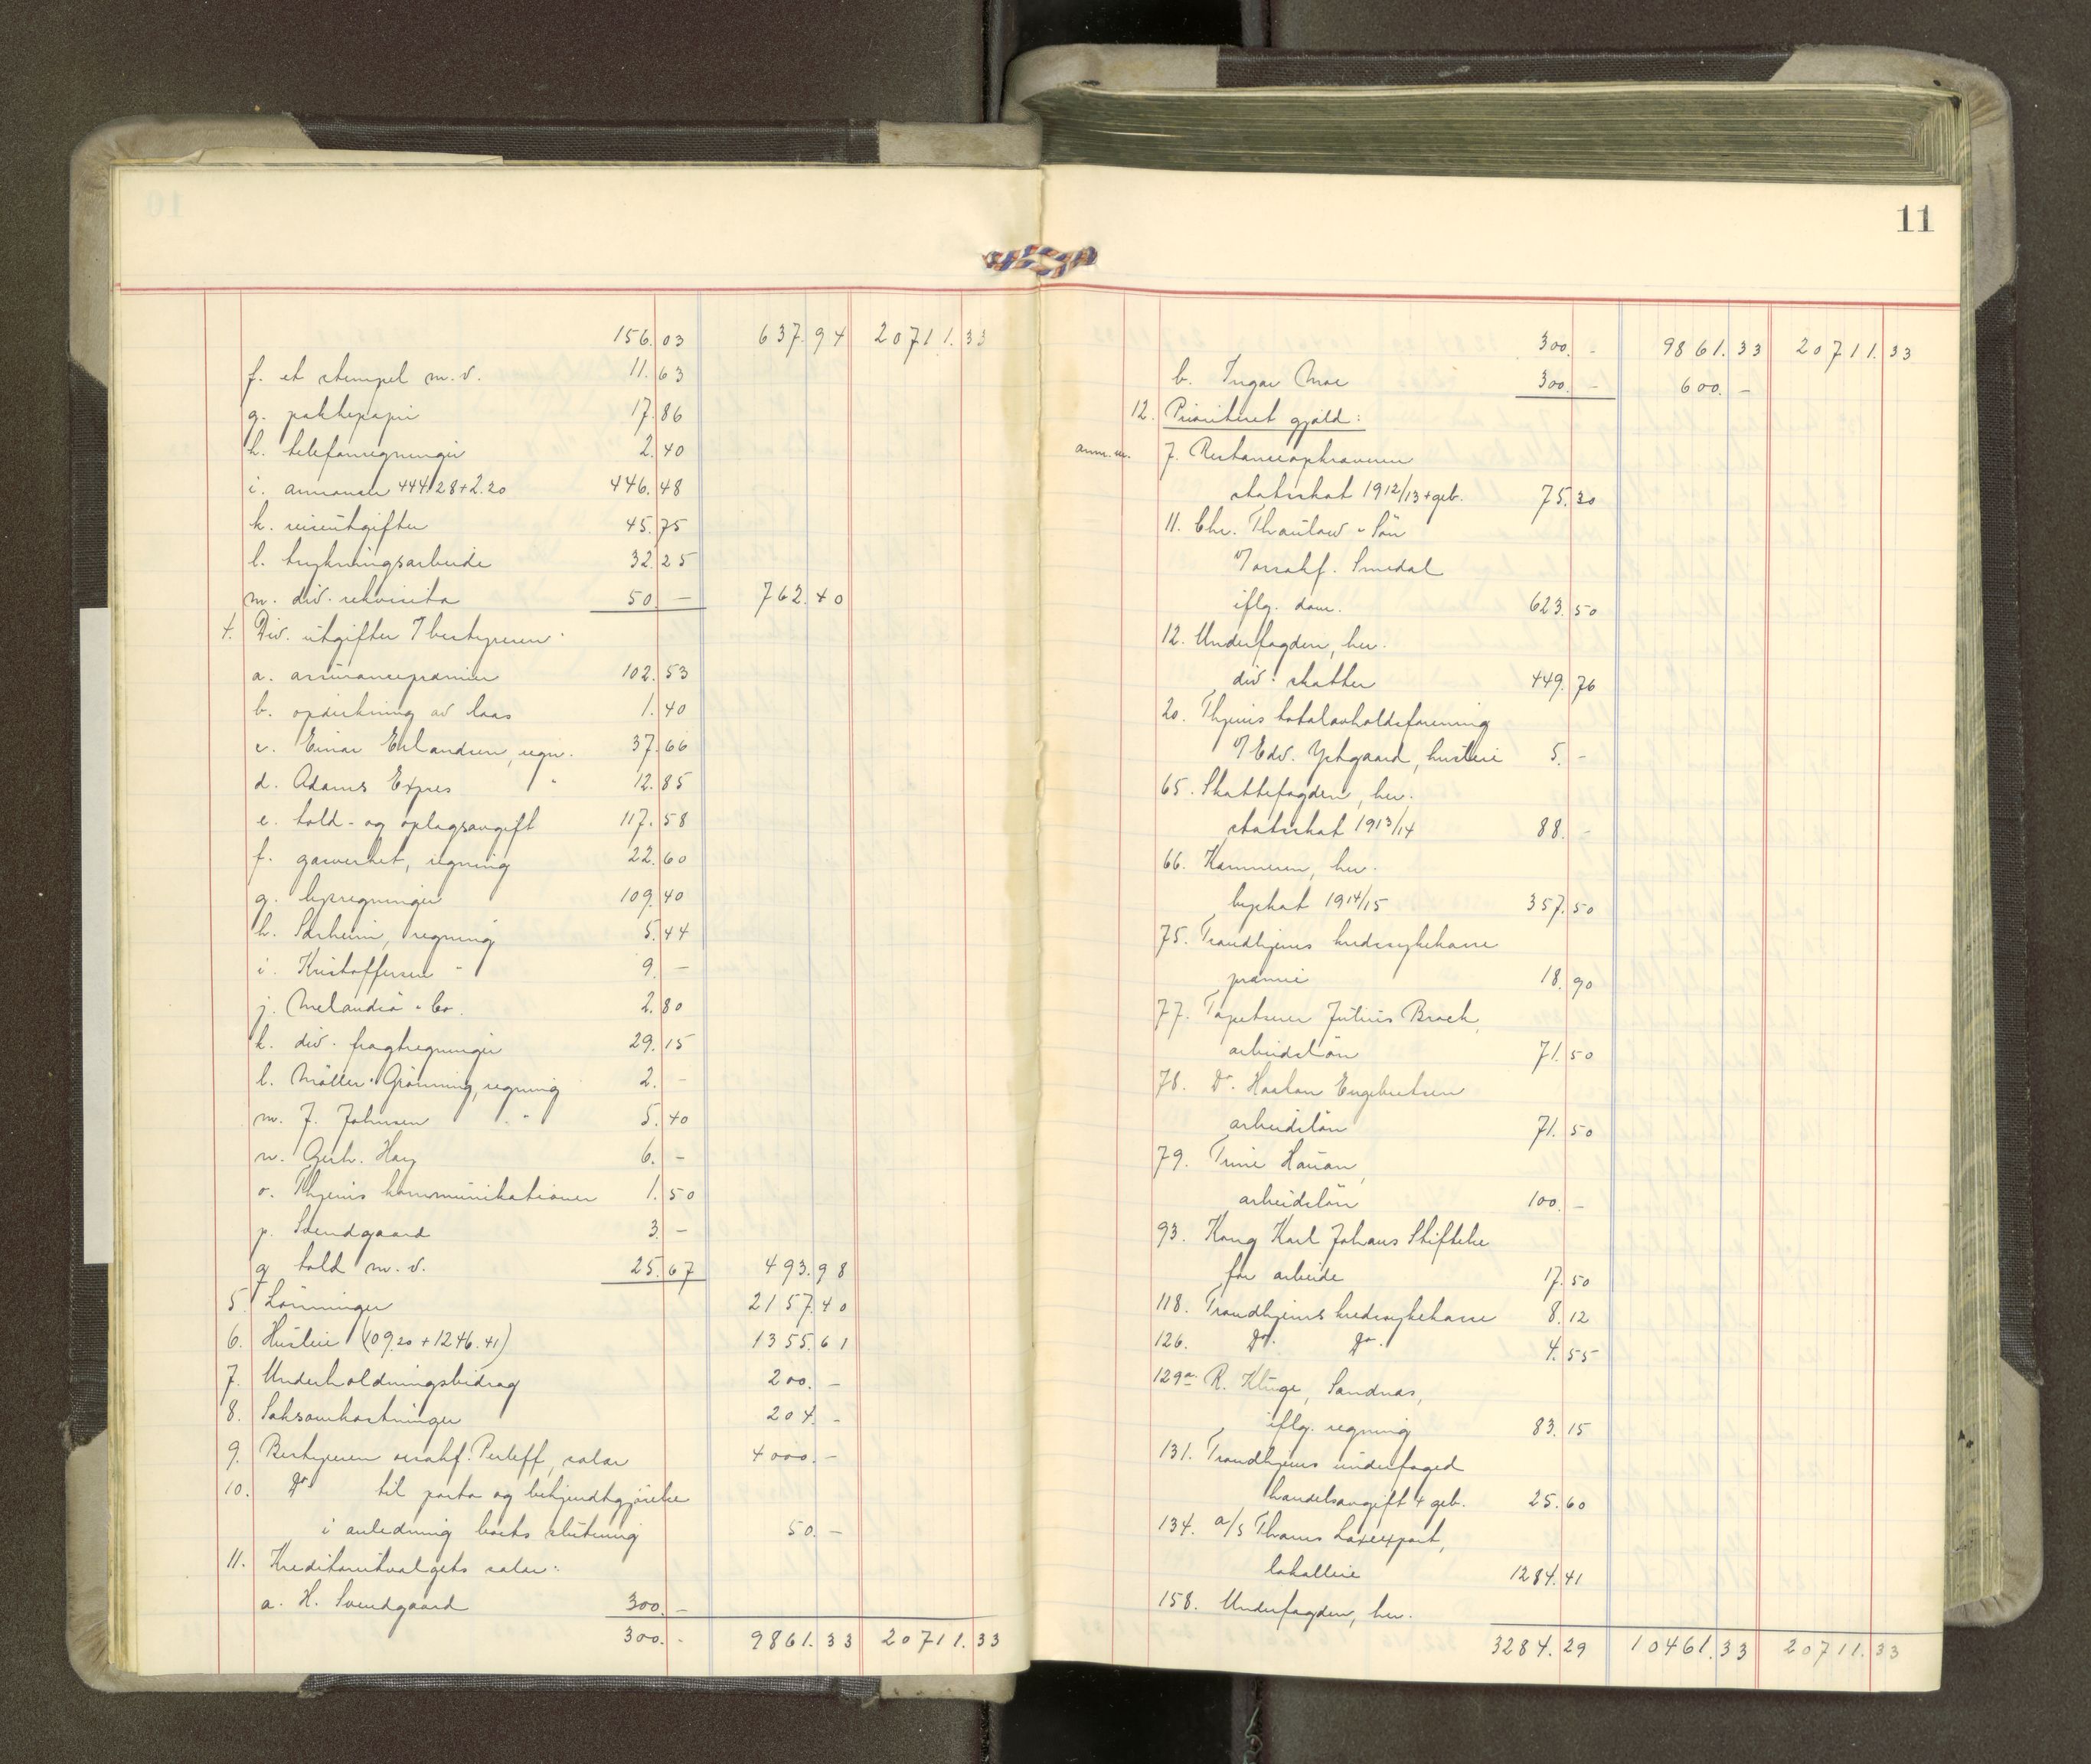 10
156.03 637.94 20711.33
f. et stempel m.v. 11.63
g. pakkepapir 17.86
h. telefonregninger 2.40
i. annoncer 444.28+2.20 446.48
k. reiseutgifter 45.75
l. trykningsarbeide 32.25
m. div. rekvisita 50.- 762.40
4. Div. utgifter v/ bestyreren:
a. assurancepræmier 102.53
b. opdirkning av laas 1.40
c. Einar Erlandsen, regn. 37.66
d. Adams Expres " 12.85
e. told- og oplagsavgift 117.58
f. gasverket, regning 22.60
g. lysregninger 109.40
h. Sørheim, regning 5.44
i. Kristoffersen " 9.-
j. Melandsø & Co. 2.80
k. div. fragtregninger 29.15
l. Møller & Grønning, regning 2.-
m. J. Johnsen " 5.40
n. Gerh. Hoy 6.-
o. Thjems kommunikationer 1.50
p. Svendgaard 3.-
q. told m.v. 25.67 493.98
5. Lønninger 2157.40
6. Husleie (109.20 + 1246.41) 1355.61
7. Underholdningsbidrag 200.-
8. Saksomkostninger 204.-
9. Bestyreren orsakf. Perleff, salær 4000.-
10. Do til porto og bekjendtgjørelse
i anledning boets slutning 50.-
11. Kreditorutvalgets salær:
a. H. Svendgaard 300.-
300.- 9861.33 20711.33
11
300.- 9861.33 20711.33
b. Ingar Moe 300.- 600.-
12. Prioritert gjæld:
anm. nr. 7. Restanceopkræveren
statsskat 1912/13 + geb. 75.30
11. Chr. Thaulow & Søn
v/ orsakf. Smedal
iflg. dom. 623.50
12. Underfogden, her.
div. skatter 449.76
20. Thjems totalavholdsforening
v/ Edv. Ystgaard, husleie 5.-
65. Skattefogden, her.
statsskat 1913/14 88.-
66. Kæmneren, her.
byskat 1914/15 357.50
75. Trondhjems kredssykekasse
præmie 18.90
77. Tapetserer Julius Brock,
arbeidsløn 71.50
78. Do. Haakon Engebretsen
arbeidsløn 71.50
79. Trine Hauan,
arbeidsløn 100.-
93. Kong Karl Johans Stiftelse
for arbeide 17.50
118. Trondhjems kredssykekasse 8.12
126. do. do. 4.55
129a. R. Kluge, Sandnæs,
iflg. regning 83.15
131. Trondhjems underfoged
handelsavgift + geb. 25.60
134. a/s Thams Laxexport,
lokalleie 1284.41
158. Underfogden, her.
3284.29 10461.33 20711.33